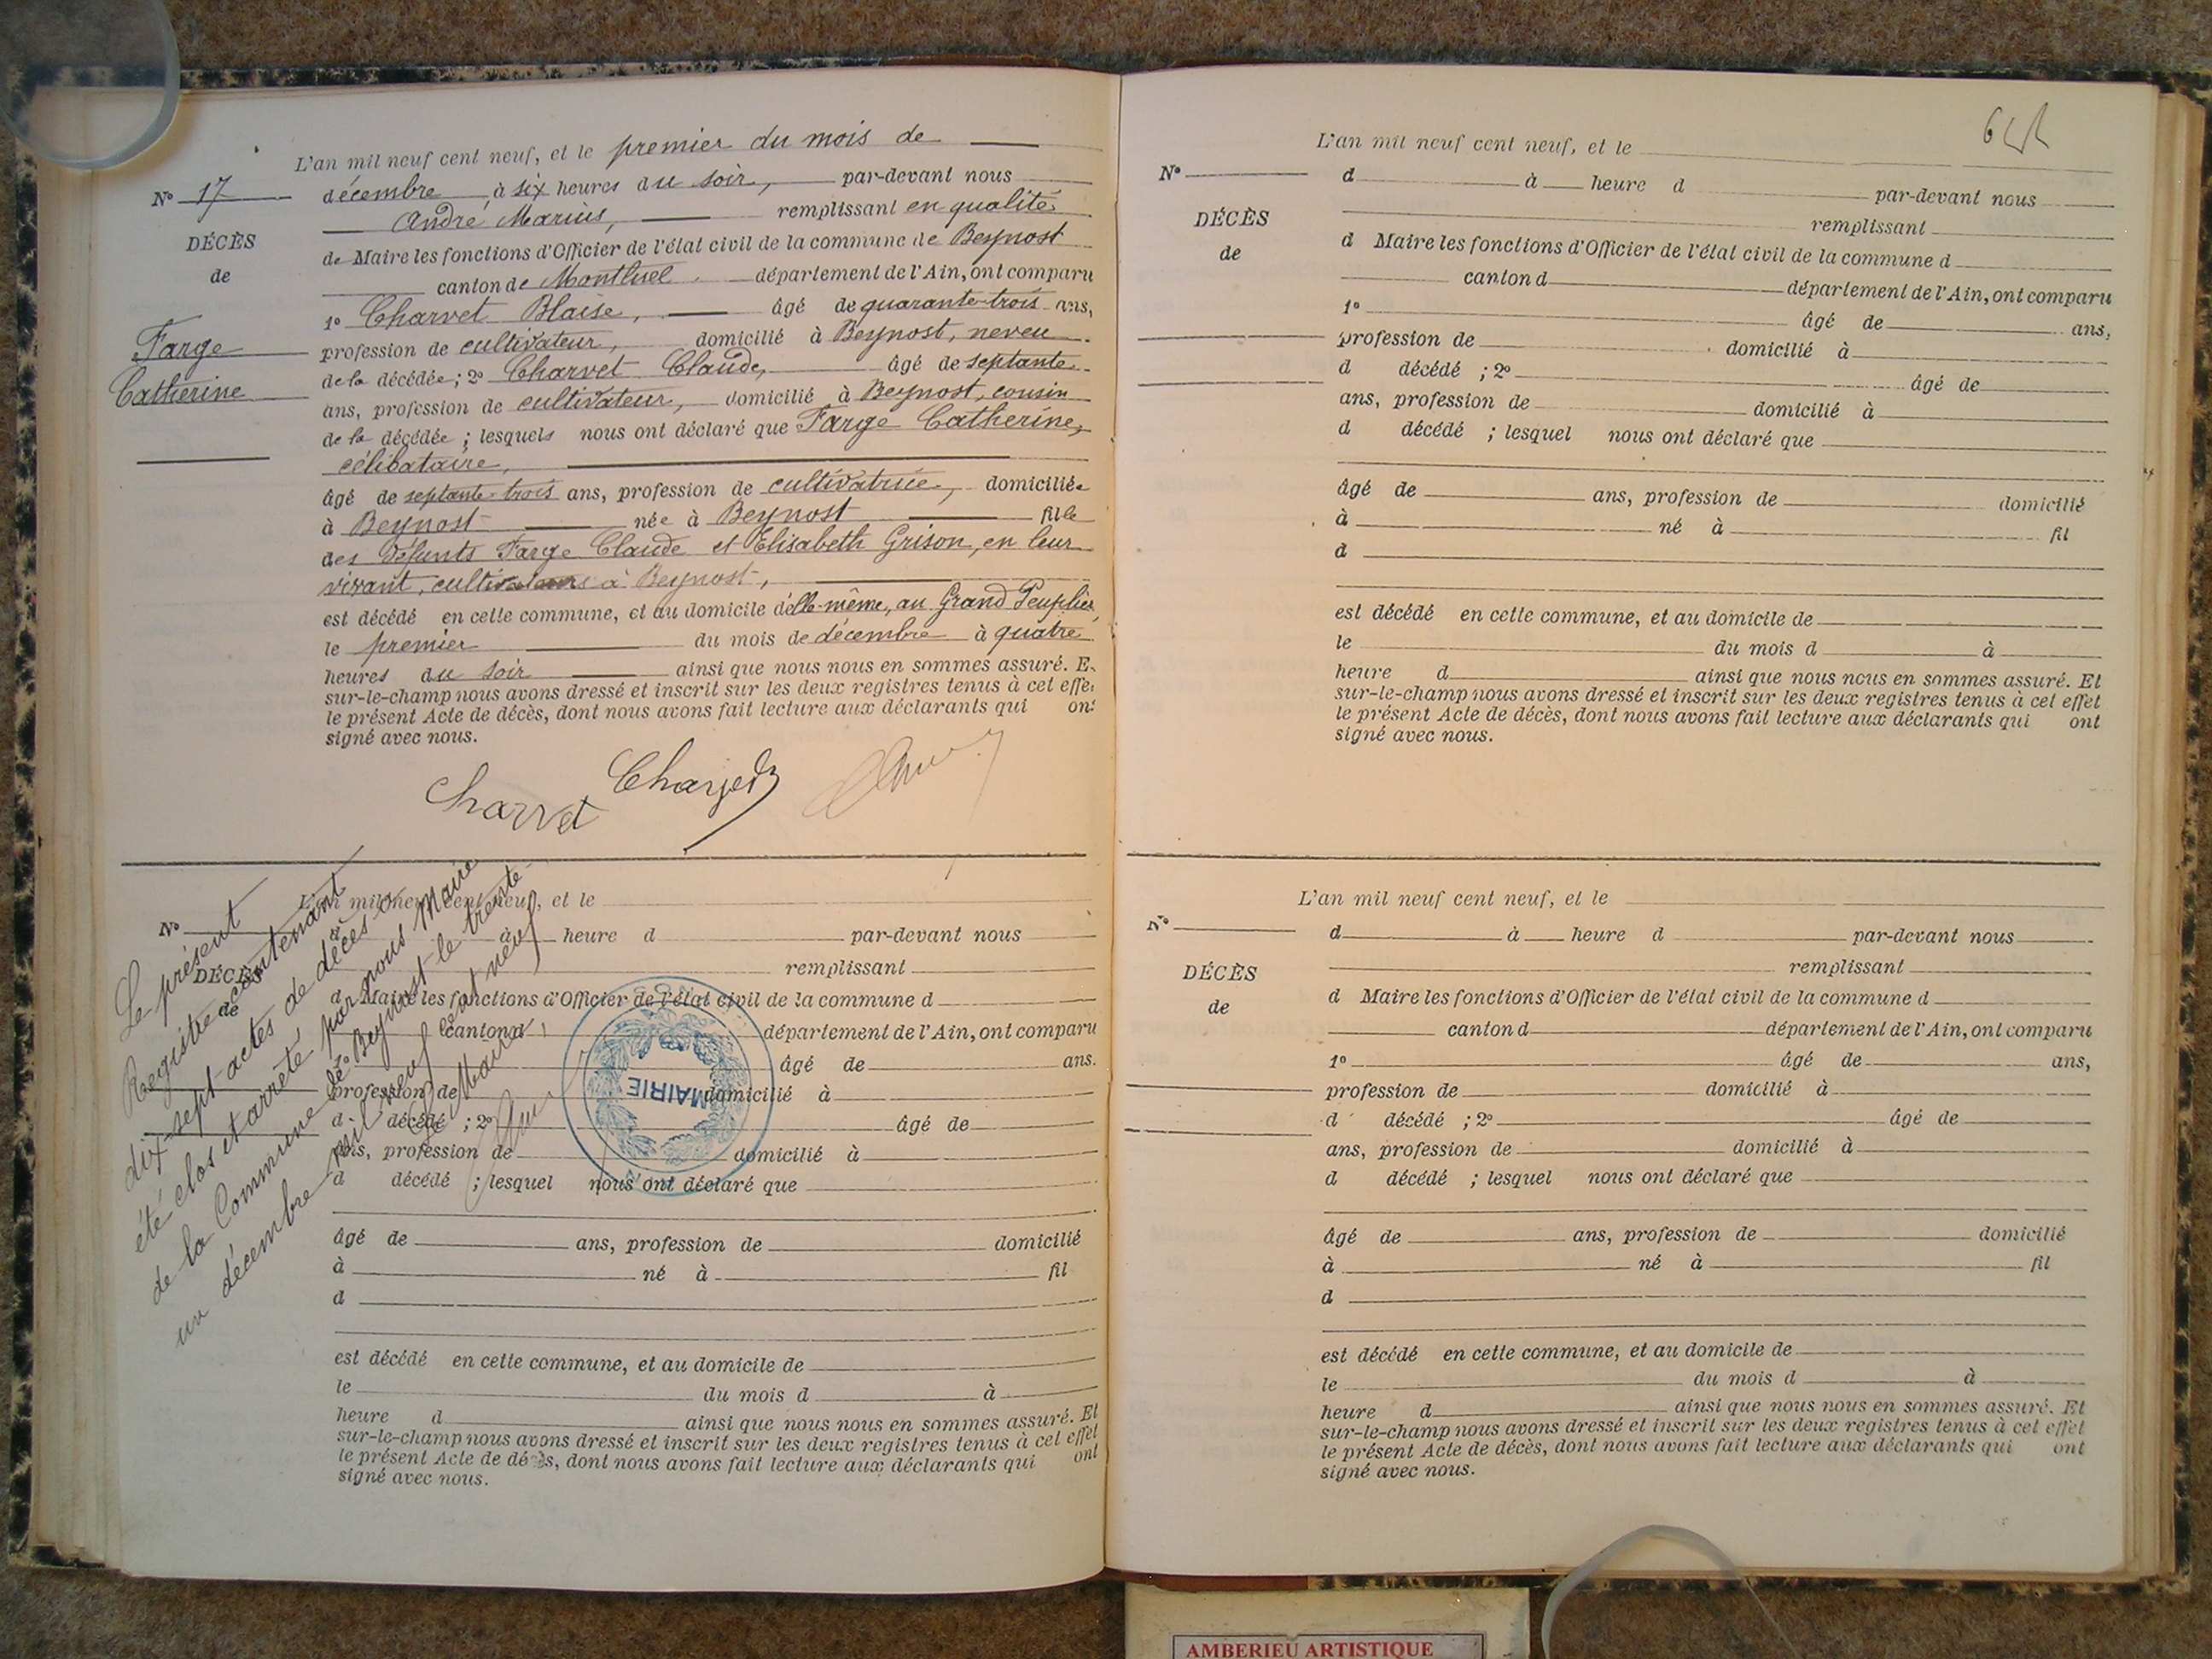 L'an mil neuf cent neuf, et le premier du mois de
N° 17 décembre, à six heures du soir, par-devant nous
André Marius, remplissant en qualité
DÉCÈS
de Maire les fonctions d'Officier de l'état civil de la commune de Beynost
de
canton de Montluel département de l'Ain, ont comparu
1° Charvet Blaise, âgé de quarante-trois ans,
Farge
profession de cultivateur, domicilié à Beynost, neveu
de la décédée; 2° Charvet Claude, âgé de septante
Catherine
ans, profession de cultivateur, domicilié à Beynost, cousin
de la décédée; lesquels nous ont déclaré que Farge Catherine,
célibataire,
âgé de septante-trois ans, profession de cultivatrice, domiciliée
à Beynost née à Beynost fille
des défunts Farge Claude et Elisabeth Grison, en leur
vivant, cultivateurs à Beynost,
est décédé en cette commune, et au domicile d'elle-même, au Grand Peuplier,
le premier du mois de décembre à quatre
heures du soir ainsi que nous nous en sommes assuré. E
sur-le-champ nous avons dressé et inscrit sur les deux registres tenus à cet effe
le présent Acte de décès, dont nous avons fait lecture aux déclarants qui on
signé avec nous.
Charvet Charvet
L'an mil neuf cent neuf, et le
N° d à heure d par-devant nous
remplissant
DÉCÈS
d Maire les fonctions d'Officier de l'état civil de la commune d
de
canton d département de l'Ain, ont comparu
1° âgé de ans.
profession de domicilié à
d décédé ; 2° âgé de
ans, profession de domicilié à
d décédé ; lesquel nous ont déclaré que
âgé de ans, profession de domicilié
à né à fil
d
est décédé en cette commune, et au domicile de
le du mois d à
heure d ainsi que nous nous en sommes assuré. Et
sur-le-champ nous avons dressé et inscrit sur les deux registres tenus à cet effet
le présent Acte de décès, dont nous avons fait lecture aux déclarants qui ont
signé avec nous.
Le présent
Registre contenant
dix-sept actes de décès a
été clos et arrêté par nous Maire
de la Commune de Beynost le trente-
un décembre mil neuf cent neuf
Le Maire,
MAIRIE
L'an mil neuf cent neuf, et le
N° d à heure d par-devant nous
remplissant
DÉCÈS
d Maire les fonctions d'Officier de l'état civil de la commune d
de
canton d département de l'Ain, ont comparu
1° âgé de ans,
profession de domicilié à
d décédé ; 2° âgé de
ans, profession de domicilié à
d décédé ; lesquel nous ont déclaré que
âgé de ans, profession de domicilié
à né à fil
d
est décédé en cette commune, et au domicile de
le du mois d à
heure d ainsi que nous nous en sommes assuré. Et
sur-le-champ nous avons dressé et inscrit sur les deux registres tenus à cet effet
le présent Acte de décès, dont nous avons fait lecture aux déclarants qui ont
signé avec nous.
L'an mil neuf cent neuf, et le
N° d à heure d par-devant nous
remplissant
DÉCÈS
d Maire les fonctions d'Officier de l'état civil de la commune d
de
canton d département de l'Ain, ont comparu
1° âgé de ans,
profession de domicilié à
d décédé ; 2° âgé de
ans, profession de domicilié à
d décédé ; lesquel nous ont déclaré que
âgé de ans, profession de domicilié
à né à fil
d
est décédé en cette commune, et au domicile de
le du mois d à
heure d ainsi que nous nous en sommes assuré. Et
sur-le-champ nous avons dressé et inscrit sur les deux registres tenus à cet effet
le présent Acte de décès, dont nous avons fait lecture aux déclarants qui ont
signé avec nous.
AMBERIEU ARTISTIQUE